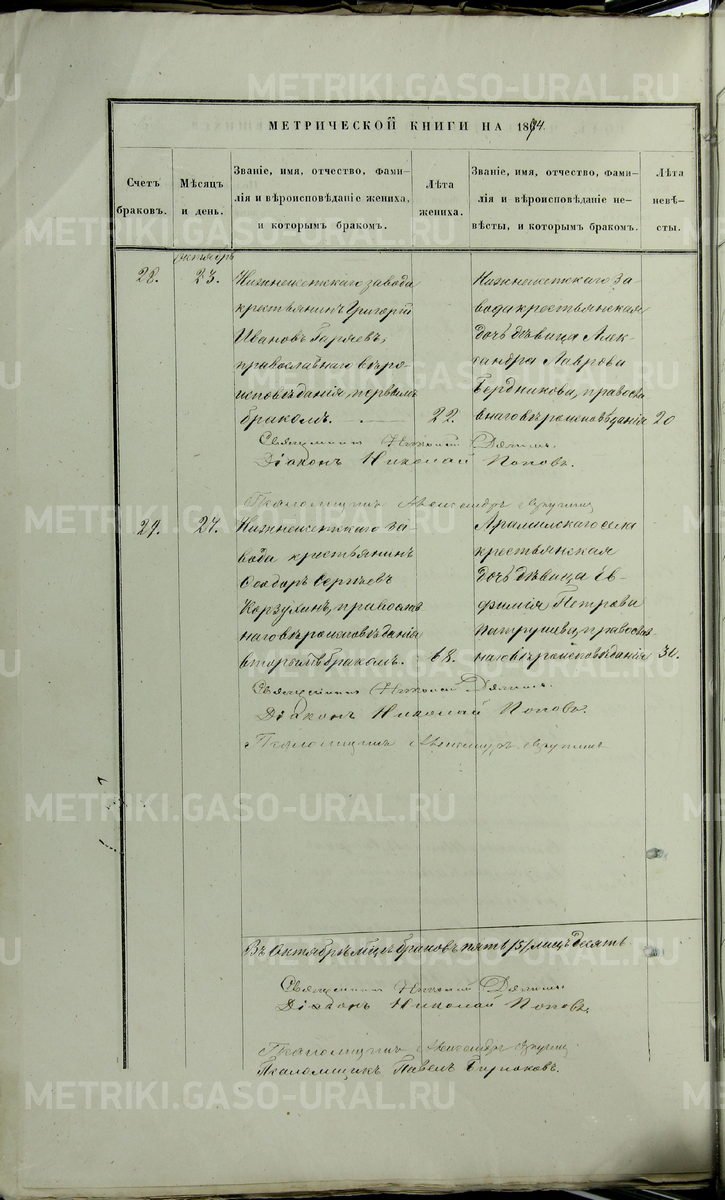 METRIKI.GASO-URAL.RU
МЕТРИЧЕСКОЙ КНИГИ НА 1894.
Счетъ браковъ.
Мѣсяцъ и день.
Званіе, имя, отчество, фами-
лія и вѣроисповѣданіе жениха,
и которымъ бракомъ.
Лѣта жениха.
Званіе, имя, отчество, фами-
лія и вѣроисповѣданіе не-
вѣсты, и которымъ бракомъ.
Лѣта невѣ-
сты.
октябрь
28.
23.
Нижнеисетскаго завода
крестьянинъ Григорій
Ивановъ Гаряевъ,
православнаго вѣро
исповѣданія, первымъ
бракомъ.
22.
Нижнеисетскаго за-
вода крестьянская
дочь дѣвица Алек-
сандра Лаврова
Бердникова, правосла
внаго вѣроисповѣданія
20
Священникъ Николай
Діаконъ Николай Поповъ.
Псаломщикъ Александръ
29.
27.
Нижнеисетскаго за-
вода крестьянинъ
Ѳеодоръ Сергѣевъ
Корзухинъ, правосла
наго вѣроисповѣданія
вторымъ бракомъ.
68.
Арамильскаго села
крестьянская
дочь дѣвица Ев-
фимія Петрова
Патрушева, правосла
наго вѣроисповѣданія
34.
Священникъ Николай
Діаконъ Николай Поповъ.
Псаломщикъ Александръ
Въ Октябрѣ м-цѣ браковъ пять /5/ лицъ десять
Священникъ Николай
Діаконъ Николай Поповъ,
Псаломщикъ Александръ
Псаломщикъ Павелъ Бирюковъ.